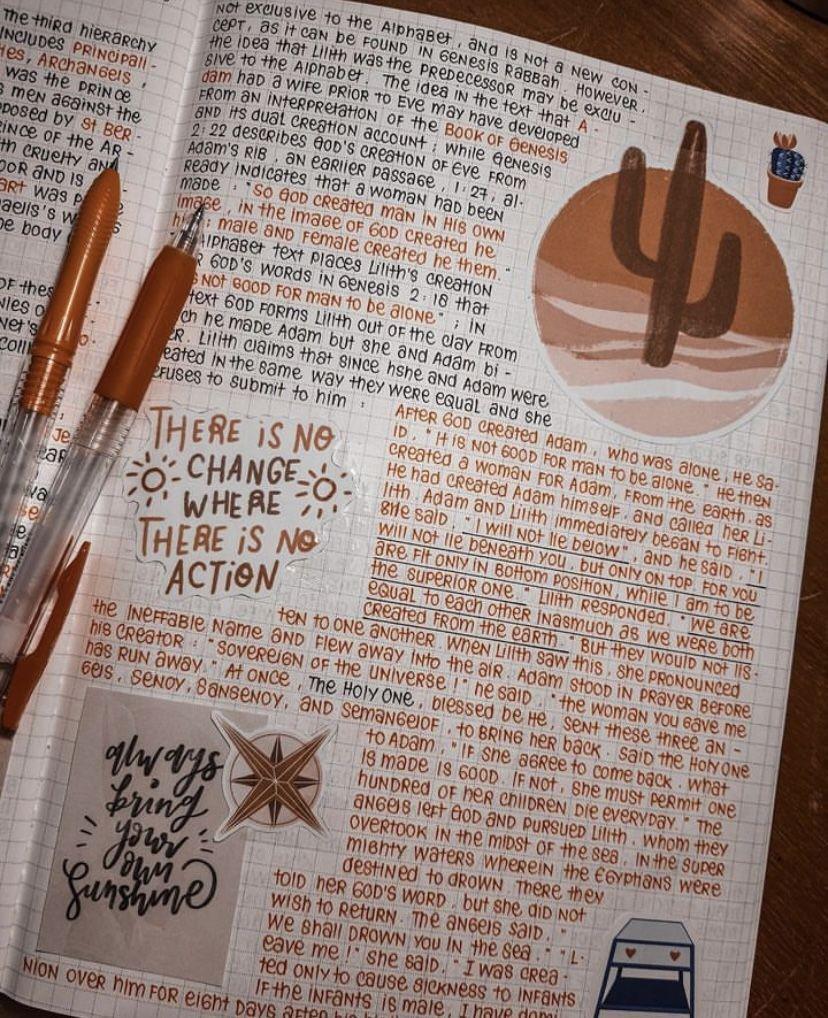 the third hierarchy
includes Principali-
ies, Archangels,
was the prince
s men against the
posed by St Ber-
rince of the Ar-
th cruelty and
oor and is
art was
aells's w
he body
of thes
net's
coll
Not exclusive to the Alphabet, and is not a new con-
cept, as it can be found in Genesis Rabbah. However,
the idea that Lilith was the predecessor may be exclu-
sive to the Alphabet. The idea in the text that A-
dam had a wife prior to Eve may have developed
from an interpretation of the Book of Genesis
and its dual creation account; while Genesis
2:22 describes God's creation of Eve from
Adam's rib, an earlier passage, 1:27, al-
ready indicates that a woman had been
made: "So God created man in his own
image, in the image of God created he
him; male and female created he them."
Alphabet text places Lilith's creation
r God's words in Genesis 2:18 that
s not good for man to be alone"; in
text God forms Lilith out of the clay from
ch he made Adam but she and Adam bi-
er. Lilith claims that since hshe and Adam were
eated in the same way they were equal and she
efuses to submit to him:
THERE IS NO
CHANGE
WHERE
THERE IS NO
ACTION
After God created Adam, who was alone, He sa-
id, "It is not good for man to be alone." He then
created a woman for Adam, from the earth, as
He had created Adam himself, and called her Li-
lith. Adam and Lilith immediately began to fight.
She said, "I will not lie below", and he said, "I
will not lie beneath you, but only on top. For you
are fit only in bottom position, while I am to be
the superior one." Lilith responded, "We are
equal to each other inasmuch as we were both
created from the earth." But they would not lis-
ten to one another. When Lilith saw this, she pronounced
the Ineffable Name and flew away into the air. Adam stood in prayer before
his creator: "Sovereign of the universe!" he said, "the woman you gave me
has run away." At once, The Holy One, blessed be He, sent these three an-
gels, Senoy, Sansenoy, and Semangelof, to bring her back. Said the Holy One
to Adam, "If she agree to come back, what
is made is good. If not, she must permit one
hundred of her children die everyday." The
angels left God and pursued Lilith, whom they
overtook in the midst of the sea, in the super
mighty waters wherein the Egyphans were
destined to drown. There they
told her God's word, but she did not
wish to return. The angels said, "
We shall drown you in the sea." "L-
eave me!" she said. "I was crea-
ted only to cause sickness to infants
If the infants is male, I have domi
nion over him for eight days after
always
bring
your
own
Sunshine